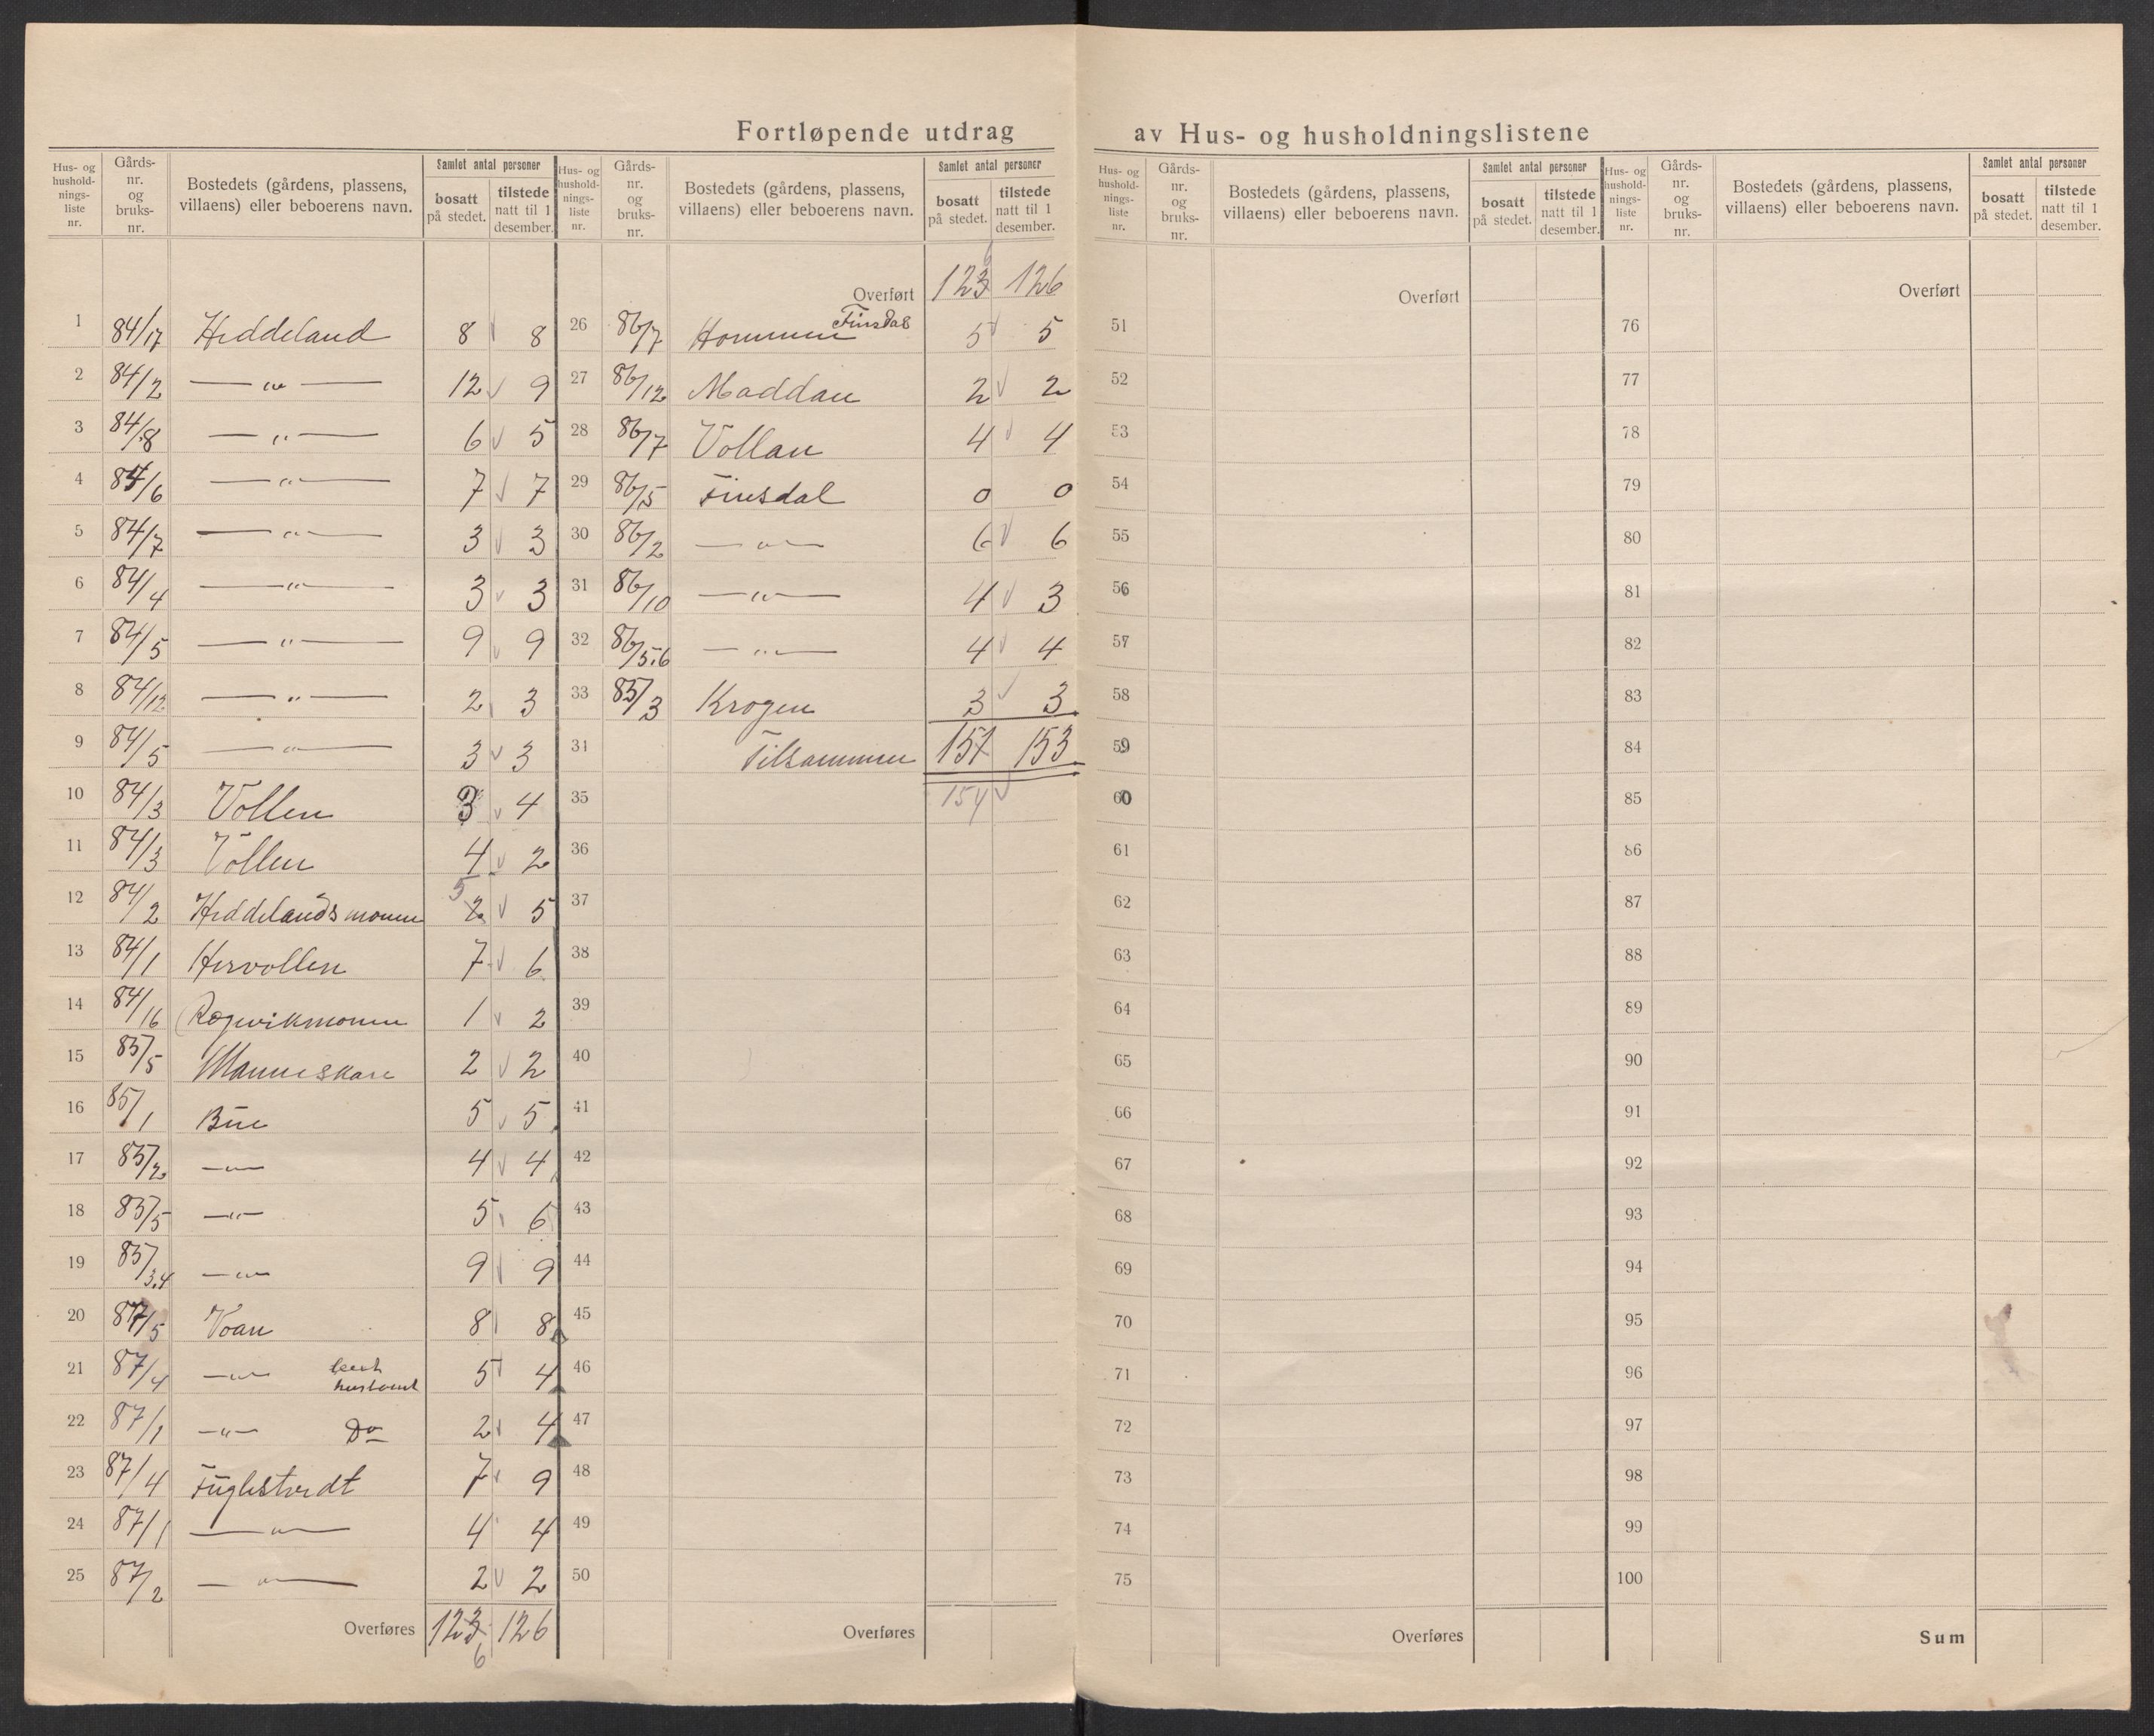 Fortløpende utdrag av Hus- og husholdningslistene
Hus- og hushold-nings-liste nr. | Gårds-nr. og bruks-nr. | Bostedets (gårdens, plassens, villaens) eller beboerens navn. | Samlet antal personer | bosatt på stedet. | tilstede natt til 1 desember.
1 84/17 Heddeland 8 8
2 84/2 — „ — 12 9
3 84/8 — „ — 6 5
4 84/6 — „ — 7 7
5 84/7 — „ — 3 3
6 84/4 — „ — 3 3
7 84/5 — „ — 9 9
8 84/12 — „ — 2 3
9 84/5 — „ — 3 3
10 84/3 Vollen 3 4
11 84/3 Vollen 4 2
12 84/2 Heddelandsmonen 2 5 5
13 84/1 Hervollen 7 6
14 84/16 Røgevikmonen 1 2
15 85/5 Manneskare 2 2
16 85/1 Bue 5 5
17 85/2 — „ — 4 4
18 85/5 — „ — 5 6
19 85/3.4 — „ — 9 9
20 87/5 Voan 8 8
21 87/4 — „ — 5 4
22 87/1 — „ — Do 2 4
23 87/4 Fuglestvedt 7 9
24 87/1 — „ — 4 4
25 87/2 — „ — 2 2
Overføres 123 126
6
Hus- og hushold-nings-liste nr. | Gårds-nr. og bruks-nr. | Bostedets (gårdens, plassens, villaens) eller beboerens navn. | Samlet antal personer | bosatt på stedet. | tilstede natt til 1 desember.
6
Overført 123 126
26 86/7 Hommen Finsdal 5 5
27 86/12 Moddan 2 2
28 86/7 Vollan 4 4
29 86/5 Finsdal 0 0
30 86/2 — „ — 6 6
31 86/10 — „ — 4 3
32 86/5.6 — „ — 4 4
33 85/3 Krogen 3 3
31 Tilsammen 151 153
35 154
36
37
38
39
40
41
42
43
44
45
46
47
48
49
50
Overføres
Hus- og hushold-nings-liste nr. | Gårds-nr. og bruks-nr. | Bostedets (gårdens, plassens, villaens) eller beboerens navn. | Samlet antal personer | bosatt på stedet. | tilstede natt til 1 desember.
Overført
51
52
53
54
55
56
57
58
59
60
61
62
63
64
65
66
67
68
69
70
71
72
73
74
75
Overføres
Hus- og hushold-nings-liste nr. | Gårds-nr. og bruks-nr. | Bostedets (gårdens, plassens, villaens) eller beboerens navn. | Samlet antal personer | bosatt på stedet. | tilstede natt til 1 desember.
Overført
76
77
78
79
80
81
82
83
84
85
86
87
88
89
90
91
92
93
94
95
96
97
98
99
100
Sum